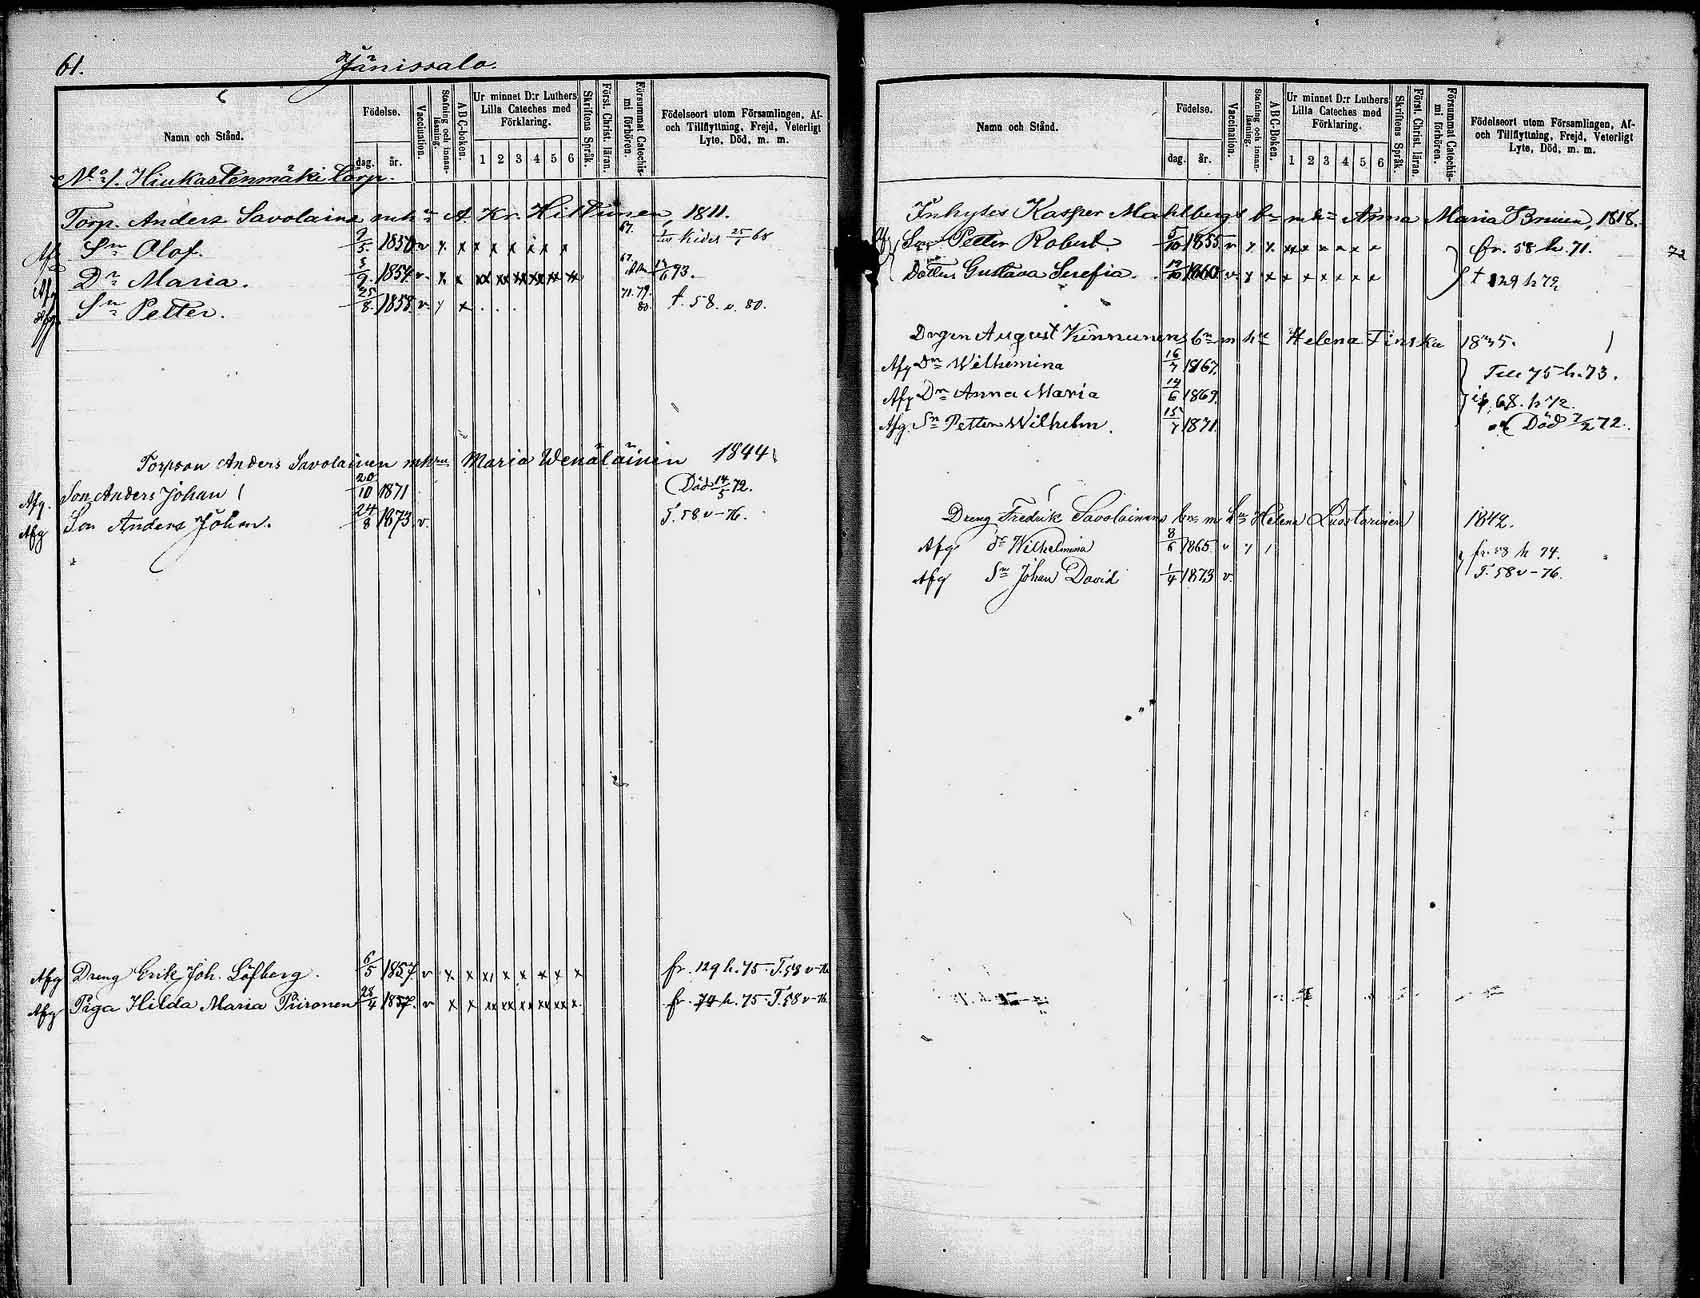 61. Jänissalo.
Namn och Stånd.
Födelse.
dag. år.
Vaccination.
Stafning och innanläsning.
ABC-boken.
Ur minnet D:r Luthers Lilla Cateches med Förklaring.
1 2 3 4 5 6
Skriftens Språk.
Först. Christ. läran.
Försummat Catechismi förhören.
Födelseort utom Församlingen, Af- och Tillflyttning, Frejd, Veterligt Lyte, Död, m. m.
No 1. Hiukastenmäki Torp.
Torp. Anders Savolaine mhu A. Kr. Hiltunen, 1811.
Sn Olof. 1850 v x x x x x x x 67.
Dr Maria. 1854 v x x xx xx xx xx xx xx 67.
Sn Petter. 25/8 1858 v x 71. 79. 80. t. 58. v. 80.
Torpson Anders Savolainen mhru Maria Wenäläinen 1844
Afg. Son Anders Johan 20/10 1871 (Död 14/5 72.
Afg Son Anders Johan. 24/8 1873 v. T. 58 v-76.
Afg Dreng Erik Joh. Löfberg. 6/5 1857. v x x x x x x x x fr. 129 h. 75. T. 58 v-76
Afg Piga Hilda Maria Piironen 28/4 1857. v x x xx xx xx xx xx x fr. 74 h. 75. T. 58 v-76
Namn och Stånd.
Födelse.
dag. år.
Vaccination.
Stafning och innanläsning.
ABC-Boken.
Ur minnet D:r Luthers Lilla Cateches med Förklaring.
1 2 3 4 5 6
Skriftens Språk.
Först. Christ. läran.
Försummat Catechismi förhören.
Födelseort utom Församlingen, Af- och Tillflyttning, Frejd, Veterligt Lyte, Död, m. m.
Inhyses Kasper Mahlbergs bn mhu Anna Maria 1818.
Son Petter Robert 5/10 1855. v x x xx x x x x x fr. 58 h. 71.
Dotter Gustava Serefia. 1860 v x x x x x x x x t 129 h 72
72
Drgen August Kinnunens bn m hu Helena Finska 1835.
Afg Dr Wilhemina 16/7 1867. Till 75 h. 73.
Afg Dr Anna Maria 14/6 1869. 68. h 72.
Afg. Sn Petter Wilhelm. 15/7 1871 Död 7/2 72.
Dreng Fredrik Savolainens bn m hu Helena Luostarinen 1842.
Afg dr Wilhelmina 8/6 1865 fr. 58 h 74.
Afg Sn Johan David 1/4 1873 v. T. 58 v-76.